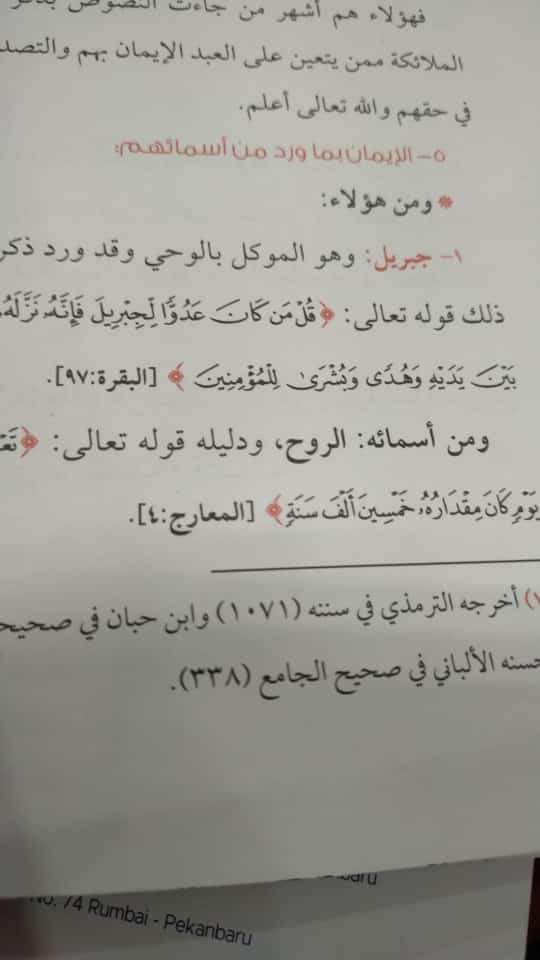 فهؤلاء هم أشهر من جاءت النصوص بذكر
الملائكة ممن يتعين على العبد الإيمان بهم والتصد
في حقهم والله تعالى أعلم.
٥- الإيمان بما ورد من أسمائهم:
* ومن هؤلاء:
١- جبريل: وهو الموكل بالوحي وقد ورد ذكر
ذلك قوله تعالى: ﴿قُلْ مَن كَانَ عَدُوًّا لِّجِبْرِيلَ فَإِنَّهُۥ نَزَّلَهُۥ
بَيْنَ يَدَيْهِ وَهُدًى وَبُشْرَىٰ لِلْمُؤْمِنِينَ ﴾ [البقرة:٩٧].
ومن أسمائه: الروح، ودليله قوله تعالى: ﴿تَعْ
يَوْمٍ كَانَ مِقْدَارُهُۥ خَمْسِينَ أَلْفَ سَنَةٍ﴾ [المعارج:٤].
(١) أخرجه الترمذي في سننه (١٠٧١) وابن حبان في صحيحـ
حسنه الألباني في صحيح الجامع (٣٣٨).
baru
No. 74 Rumbai - Pekanbaru